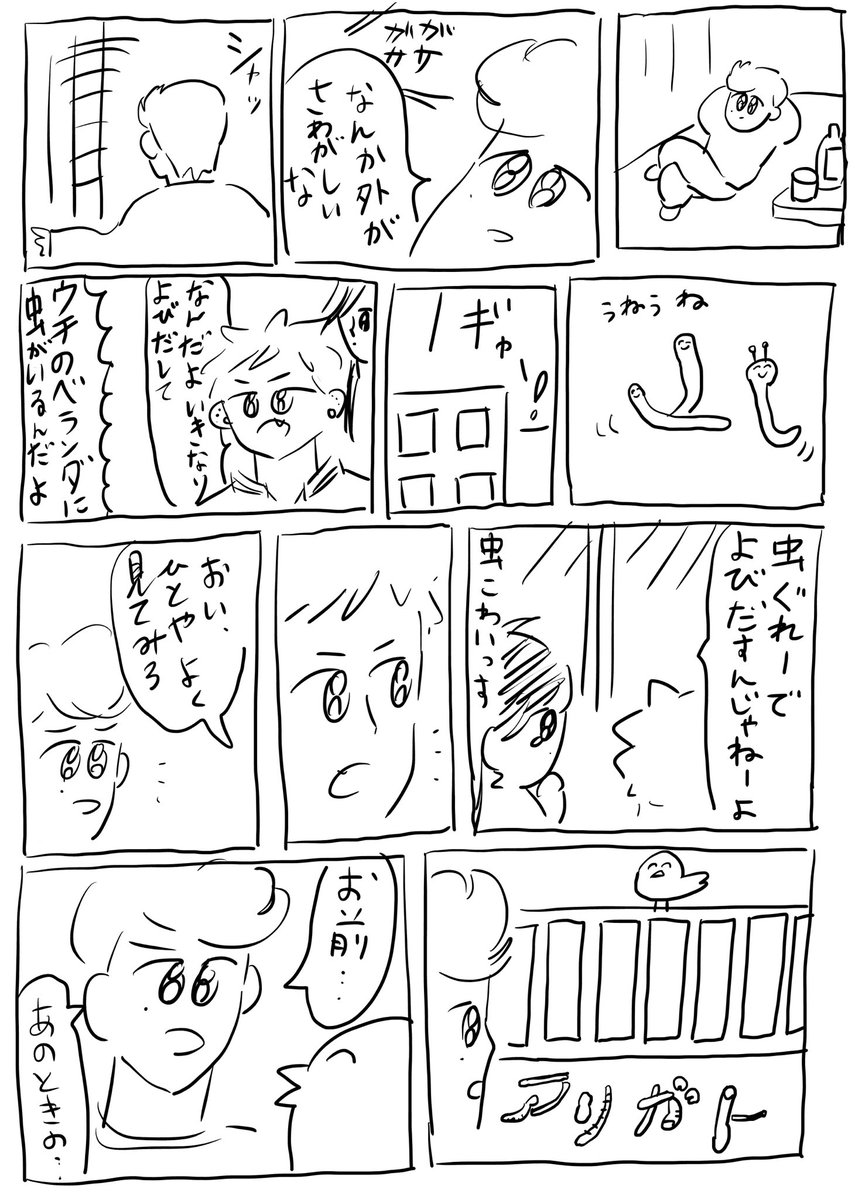 ガサ
ガサ
なんか外が
さわがしい
な
シャッ
うねうね
ギャー!!
なんだよいきなり
よびだして
ウチのベランダに
虫がいるんだよ
虫ぐれーで
よびだすんじゃねーよ
虫こわいっす
おい、
ひとやよく
見てみろ
アリガトー
お前…
あのときの…